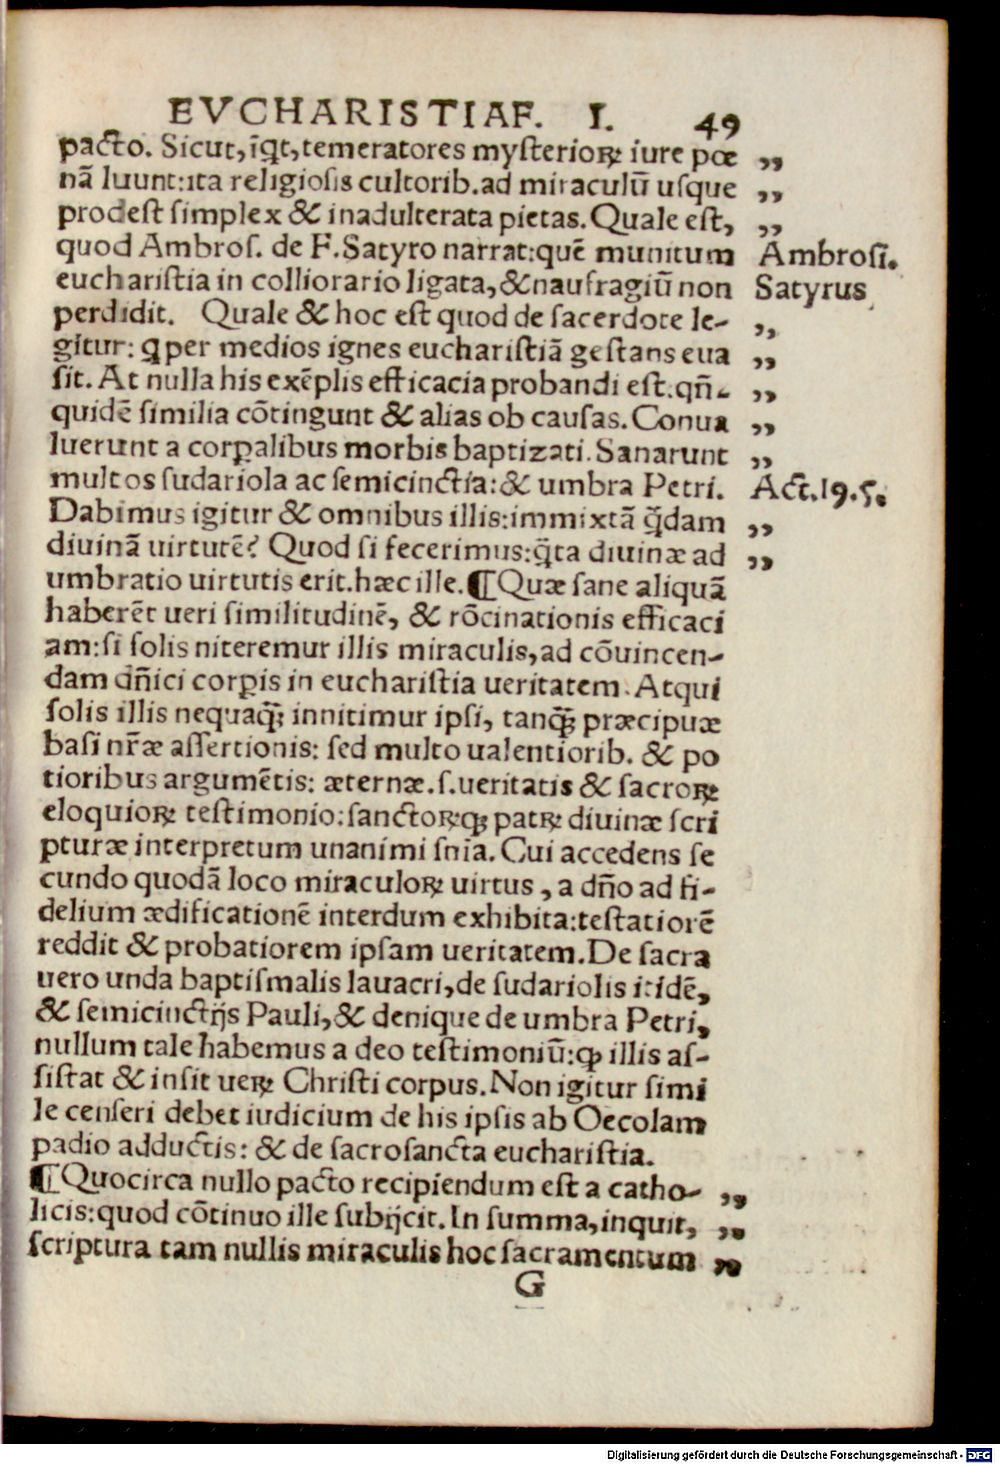 EVCHARISTIAE. I. 49
pacto. Sicut, īq̃t, temeratores mysterioꝝ iure pœ ,,
nã luunt: ita religiosis cultorib. ad miraculũ usque ,,
prodest simplex & inadulterata pietas. Quale est, ,,
quod Ambros. de F. Satyro narrat: quẽ munitum Ambrosĩ.
eucharistia in colliorario ligata, & naufragiũ non Satyrus
perdidit. Quale & hoc est quod de sacerdote le- ,,
gitur: ꝙ per medios ignes eucharistiã gestans eua ,,
sit. At nulla his exẽplis efficacia probandi est. qñ- ,,
quidẽ similia cõtingunt & alias ob causas. Conua ,,
luerunt a corꝑalibus morbis baptizati. Sanarunt ,,
multos sudariola ac semicinctia: & umbra Petri. Act. 19. 5.
Dabimus igitur & omnibus illis: immixtã q̃dam ,,
diuinã uirtutẽ? Quod si fecerimus: q̃ta diuinæ ad ,,
umbratio uirtutis erit. hæc ille. ¶ Quæ sane aliquã
haberẽt ueri similitudinẽ, & rõcinationis efficaci
am: si solis niteremur illis miraculis, ad cõuincen-
dam dñici corꝑis in eucharistia ueritatem. Atqui
solis illis nequaq̃ꝫ innitimur ipsi, tanq̃ꝫ præcipuæ
basi nr̃æ assertionis: sed multo ualentiorib. & po
tioribus argumẽtis: æternæ. s. ueritatis & sacroꝝ
eloquioꝝ testimonio: sanctoꝝqꝫ patꝝ diuinæ scri
pturæ interpretum unanimi snĩa. Cui accedens se
cundo quodã loco miraculoꝝ uirtus, a dño ad fi-
delium ædificationẽ interdum exhibita: testatiorẽ
reddit & probatiorem ipsam ueritatem. De sacra
uero unda baptismalis lauacri, de sudariolis itidẽ,
& semicinctijs Pauli, & denique de umbra Petri,
nullum tale habemus a deo testimoniũ: ꝙ illis as-
sistat & insit ueꝝ Christi corpus. Non igitur simi
le censeri debet iudicium de his ipsis ab Oecolam
padio adductis: & de sacrosancta eucharistia.
¶ Quocirca nullo pacto recipiendum est a catho- ,,
licis: quod cõtinuo ille subijcit. In summa, inquit, ,,
scriptura tam nullis miraculis hoc sacramentum ,,
G
Digitalisierung gefördert durch die Deutsche Forschungsgemeinschaft - DFG